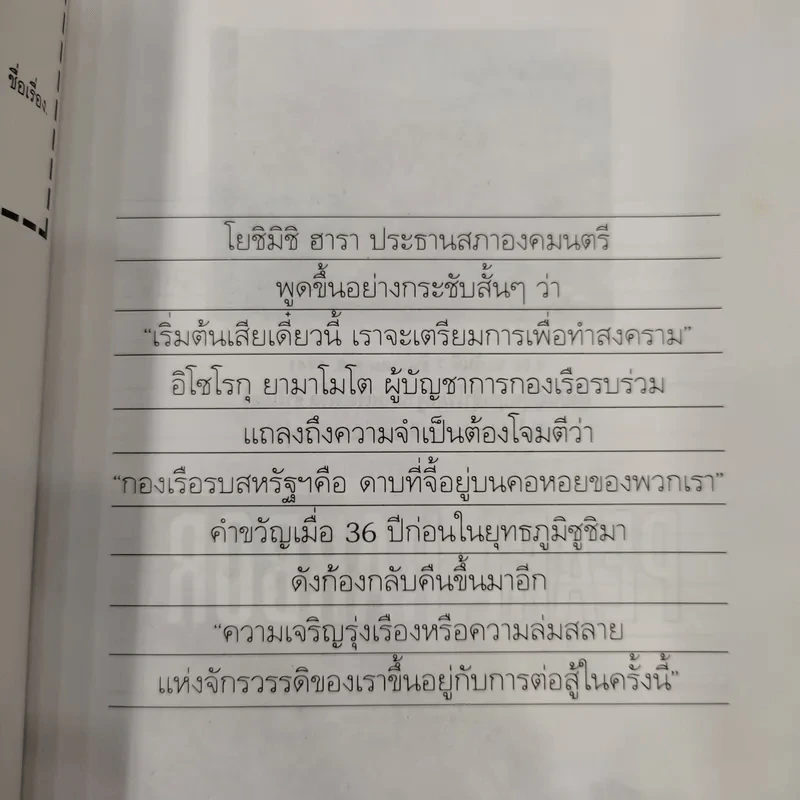 ชื่อเรื่อง
โยชิมิชิ ฮารา ประธานสภาองคมนตรี
พูดขึ้นอย่างกระชับสั้นๆ ว่า
“เริ่มต้นเสียเดี๋ยวนี้ เราจะเตรียมการเพื่อทำสงคราม”
อิโซโรกุ ยามาโมโต ผู้บัญชาการกองเรือรบร่วม
แถลงถึงความจำเป็นต้องโจมตีว่า
“กองเรือรบสหรัฐฯคือ ดาบที่จี้อยู่บนคอหอยของพวกเรา”
คำขวัญเมื่อ 36 ปีก่อนในยุทธภูมิซูชิมา
ดังก้องกลับคืนขึ้นมาอีก
“ความเจริญรุ่งเรืองหรือความล่มสลาย
แห่งจักรวรรดิของเราขึ้นอยู่กับการต่อสู้ในครั้งนี้”